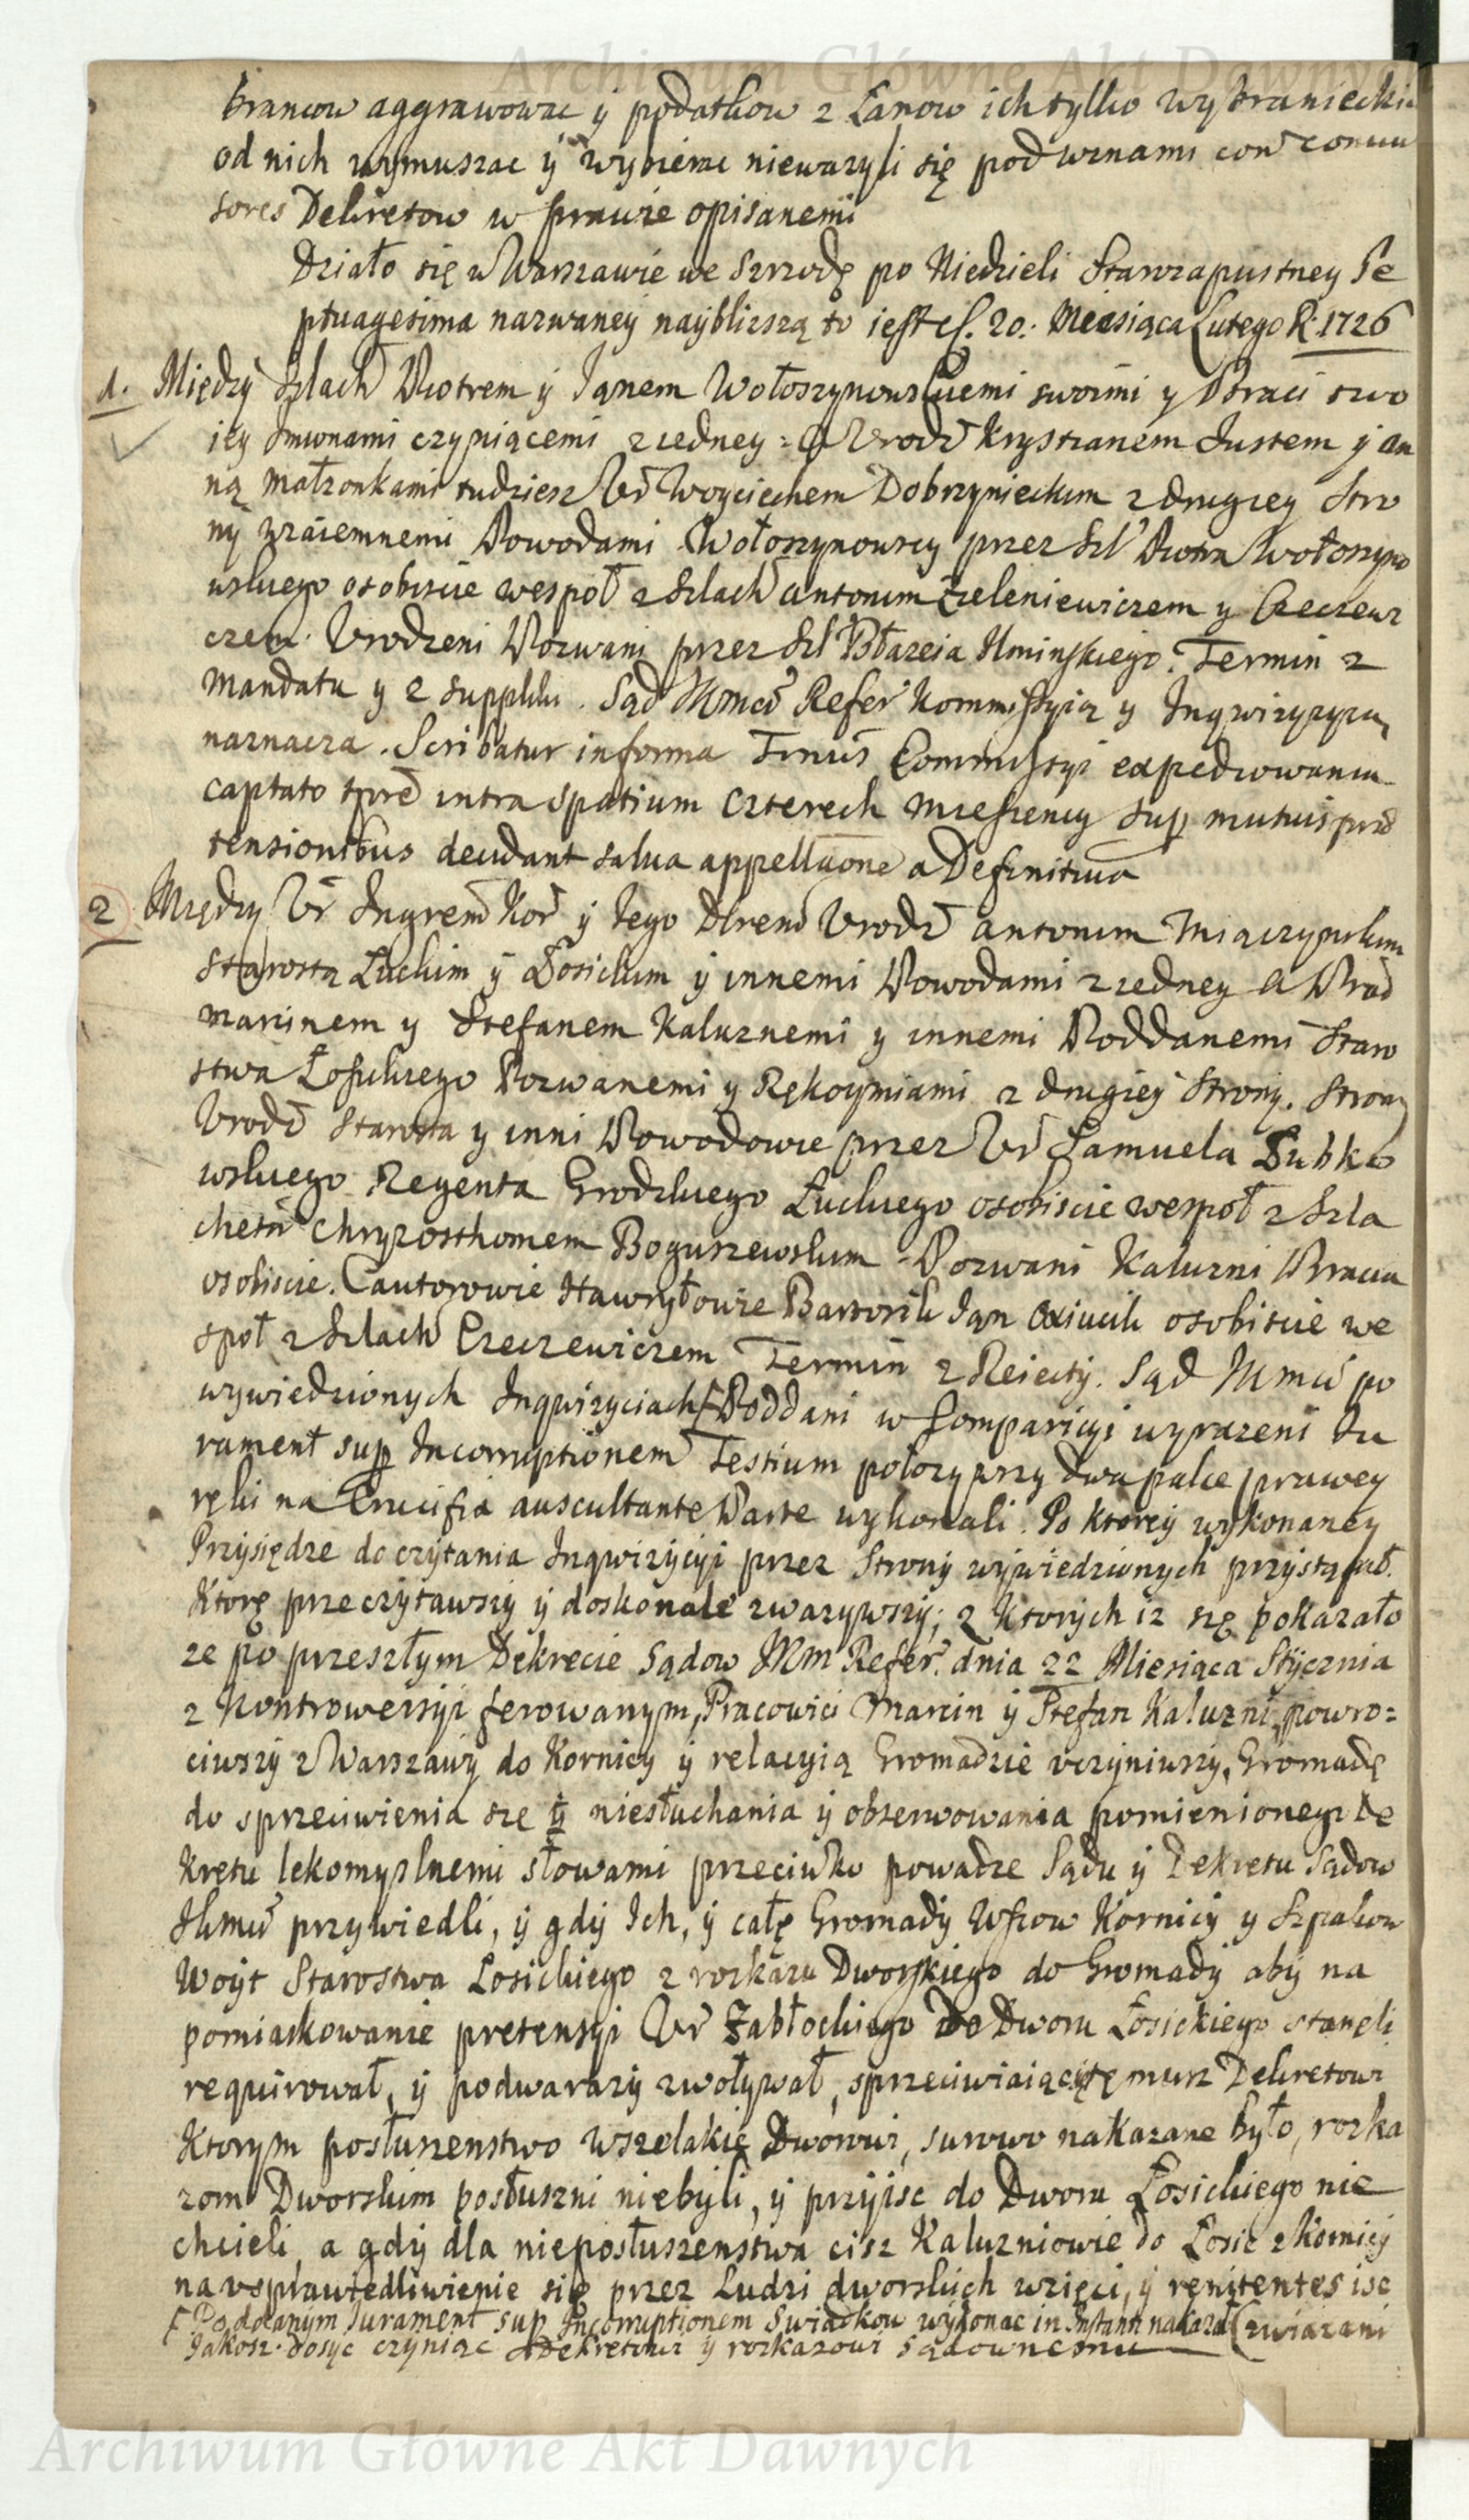 Archiwum Główne Akt Dawnych
brancow aggrawowac y podatkow z Łanow ich tylko wybranieckich
od nich wymuszac y wybierac niewazyli się pod winami con
sores Dekretow w prawie opisanemi
Działo się w Warszawie we Szrzodę po Niedzieli Starozapustney Se
ptuagesima nazwaney nayblizszą to iest d. 20. Miesiąca Lutego R. 1726
1. Między Szlach Piotrem y Janem Wołoszynowskiemi swoimi y Braci swo
iey Imionami czyniącemi z iedney = A Vrodz Krystianem Justem y An
ną małzonkami tudziesz Vr Woyciechem Dobrzynieckim z drugiey Stro
ny wzaiemnemi Powodami Wołoszynowscy przez Szl Piotra Wołoszyno
wskiego osobiscie wespoł z Szlach Antonim Zieleniewiczem y Czeczewi
czem. Vrodzeni Pozwani przez Szl Błazeia Uminskiego. Termin z
Mandatu y z Suppliki. Sąd JKmci Refer Kommissyią y Inqwizycyią
naznacza. Scribatur in forma Commissyi expediowania
captato tpre intra spatium czterech Miesięcy sup mutuis præ
tensionibus decidant salva appellaone a Definitiva
2 Między Vr Ingrem Kor y Jego Dlrem Vrodz Antonim Miączynskim
Starostą Łuckim y Łosickim y innemi Powodami z iedney A Prac
Marcinem y Stefanem Kaluznemi y innemi Poddanemi Staro
stwa Łosickiego Pozwanemi y Rękoymiami z drugiey Strony. Strony
Vrodz Starosta y inni Powodowie przez Vr Samuela Dubko
wskiego Regenta Grodzkiego Łuckiego osobiscie wespoł z Szla
chetn Chryzosthomem Boguszewskim. Pozwani Kaluzni Bracia
osobiscie. Cautorowie Hawryłowie Bartosik Jan Oxiucik osobiscie we
społ z Szlach Czeczewiczem Termin z Reiecty. Sąd JKmci po
wywiedzionych Inqwizyciach Ⱶ Poddani w Comparicyi wyrazeni Ju
rament sup Incorruptionem Testium połozywszy dwa palce prawey
ręki na Crucifix auscultante Parte wykonali. Po ktorey wykonaney
Przysiędze do czytania Inqwizycyi przez Strony wywiedzionych przystąpił.
Ktorę przeczytawszy y doskonale zwazywszy; z ktorych iz się pokazało
ze po przeszłym Dekrecie Sądow JKm Refer. dnia 22 Miesiąca Stycznia
z Kontrowersyi ferowanym, Pracowici Marcin y Stefan Kaluzni, powro=
ciwszy z Warszawy do Kornicy y relacyią Gromadzie vczyniwszy, Gromadę
do sprzeciwienia się y niesłuchania y obserwowania pomienionego De
kretu lekomyslnemi słowami przeciwko powadze Sądu y Dekretu Sądow
JKmci przywiedli, y gdy Ich, y całę Gromady Wsiow Kornicy y Szpakow
Woyt Starostwa Łosickiego z rozkazu Dworskiego do Gromady aby na
pomiarkowanie pretensyi Vr Zabłockiego do Dworu Łosickiego staneli
requirował, y podwarazy zwoływał, sprzeciwiaiąc się musz Dekretowi
Ktorym posłuszenstwo wszelakie Dworowi, surowo nakazane było, rozka
zom Dworskim posłuszni niebyli, y przyisc do Dworu Łosickiego nie
chcieli, a gdy dla nieposłuszenstwa cisz Kaluzniowie do Łosic z Kornicy
na vsprawiedliwienie się przez Ludzi dworskich wzięci, y renitentes isc
Ⱶ Poddanym Jurament sup Incorruptionem Swiadkow wykonac in Instanti nakazał (zwiazani
Jakosz dosyc czyniąc Dekretowi y rozkazowi Sądownemu
Archiwum Główne Akt Dawnych